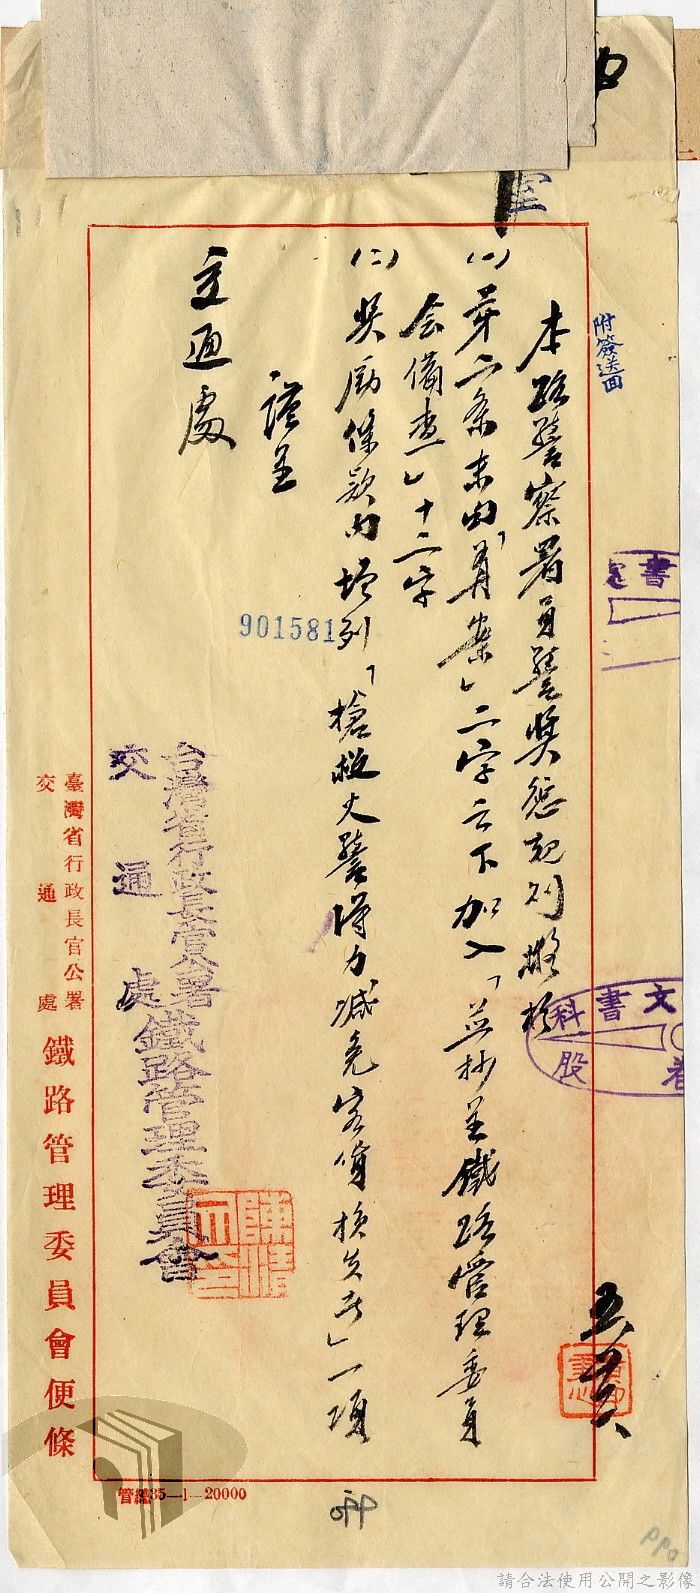 附簽送回
本路警察署員警獎懲規則擬於
(一)第二条末句「員案」二字之下加入「並抄呈鐵路管理委員
会備查」十二字
(二)獎勵條款內增列「搶救火警得力減免客貨損失者」一項
謹呈
交通處
901581
台灣省行政長官公署
交通處
鐵路管理委員會
臺灣省行政長官公署
交通處
鐵路管理委員會便條
管總35—1—20000
文書科
股
書
請合法使用公開之影像